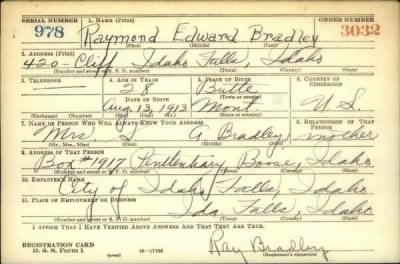 SERIAL NUMBER 1. Name (Print) ORDER NUMBER
978 Raymond Edward Bradley 3032
(First) (Middle) (Last)
2. Address (Print)
420-Cliff Idaho Falls, Idaho
(Number and street or R. F. D. number) (Town) (County) (State)
3. Telephone 4. Age in Years 5. Place of Birth 6. Country of Citizenship
— 28 Butte
Date of Birth (Town or county)
Aug. 13, 1913 Mont. U S.
(Exchange) (Number) (Mo.) (Day) (Yr.) (State or country)
7. Name of Person Who Will Always Know Your Address 8. Relationship of That Person
Mrs G. Bradley, mother
(Mr., Mrs., Miss) (First) (Middle) (Last)
9. Address of That Person
Box #1917 Penitentiary Boise, Idaho
(Number and street or R. F. D. number) (Town) (County) (State)
10. Employer's Name
City of Idaho Falls, Idaho
11. Place of Employment or Business
Ida. Falls, Idaho
(Number and street or R. F. D. number) (Town) (County) (State)
I Affirm That I Have Verified Above Answers and That They Are True.
REGISTRATION CARD
D. S. S. Form 1 (over) Ray Bradley
(Registrant's signature)